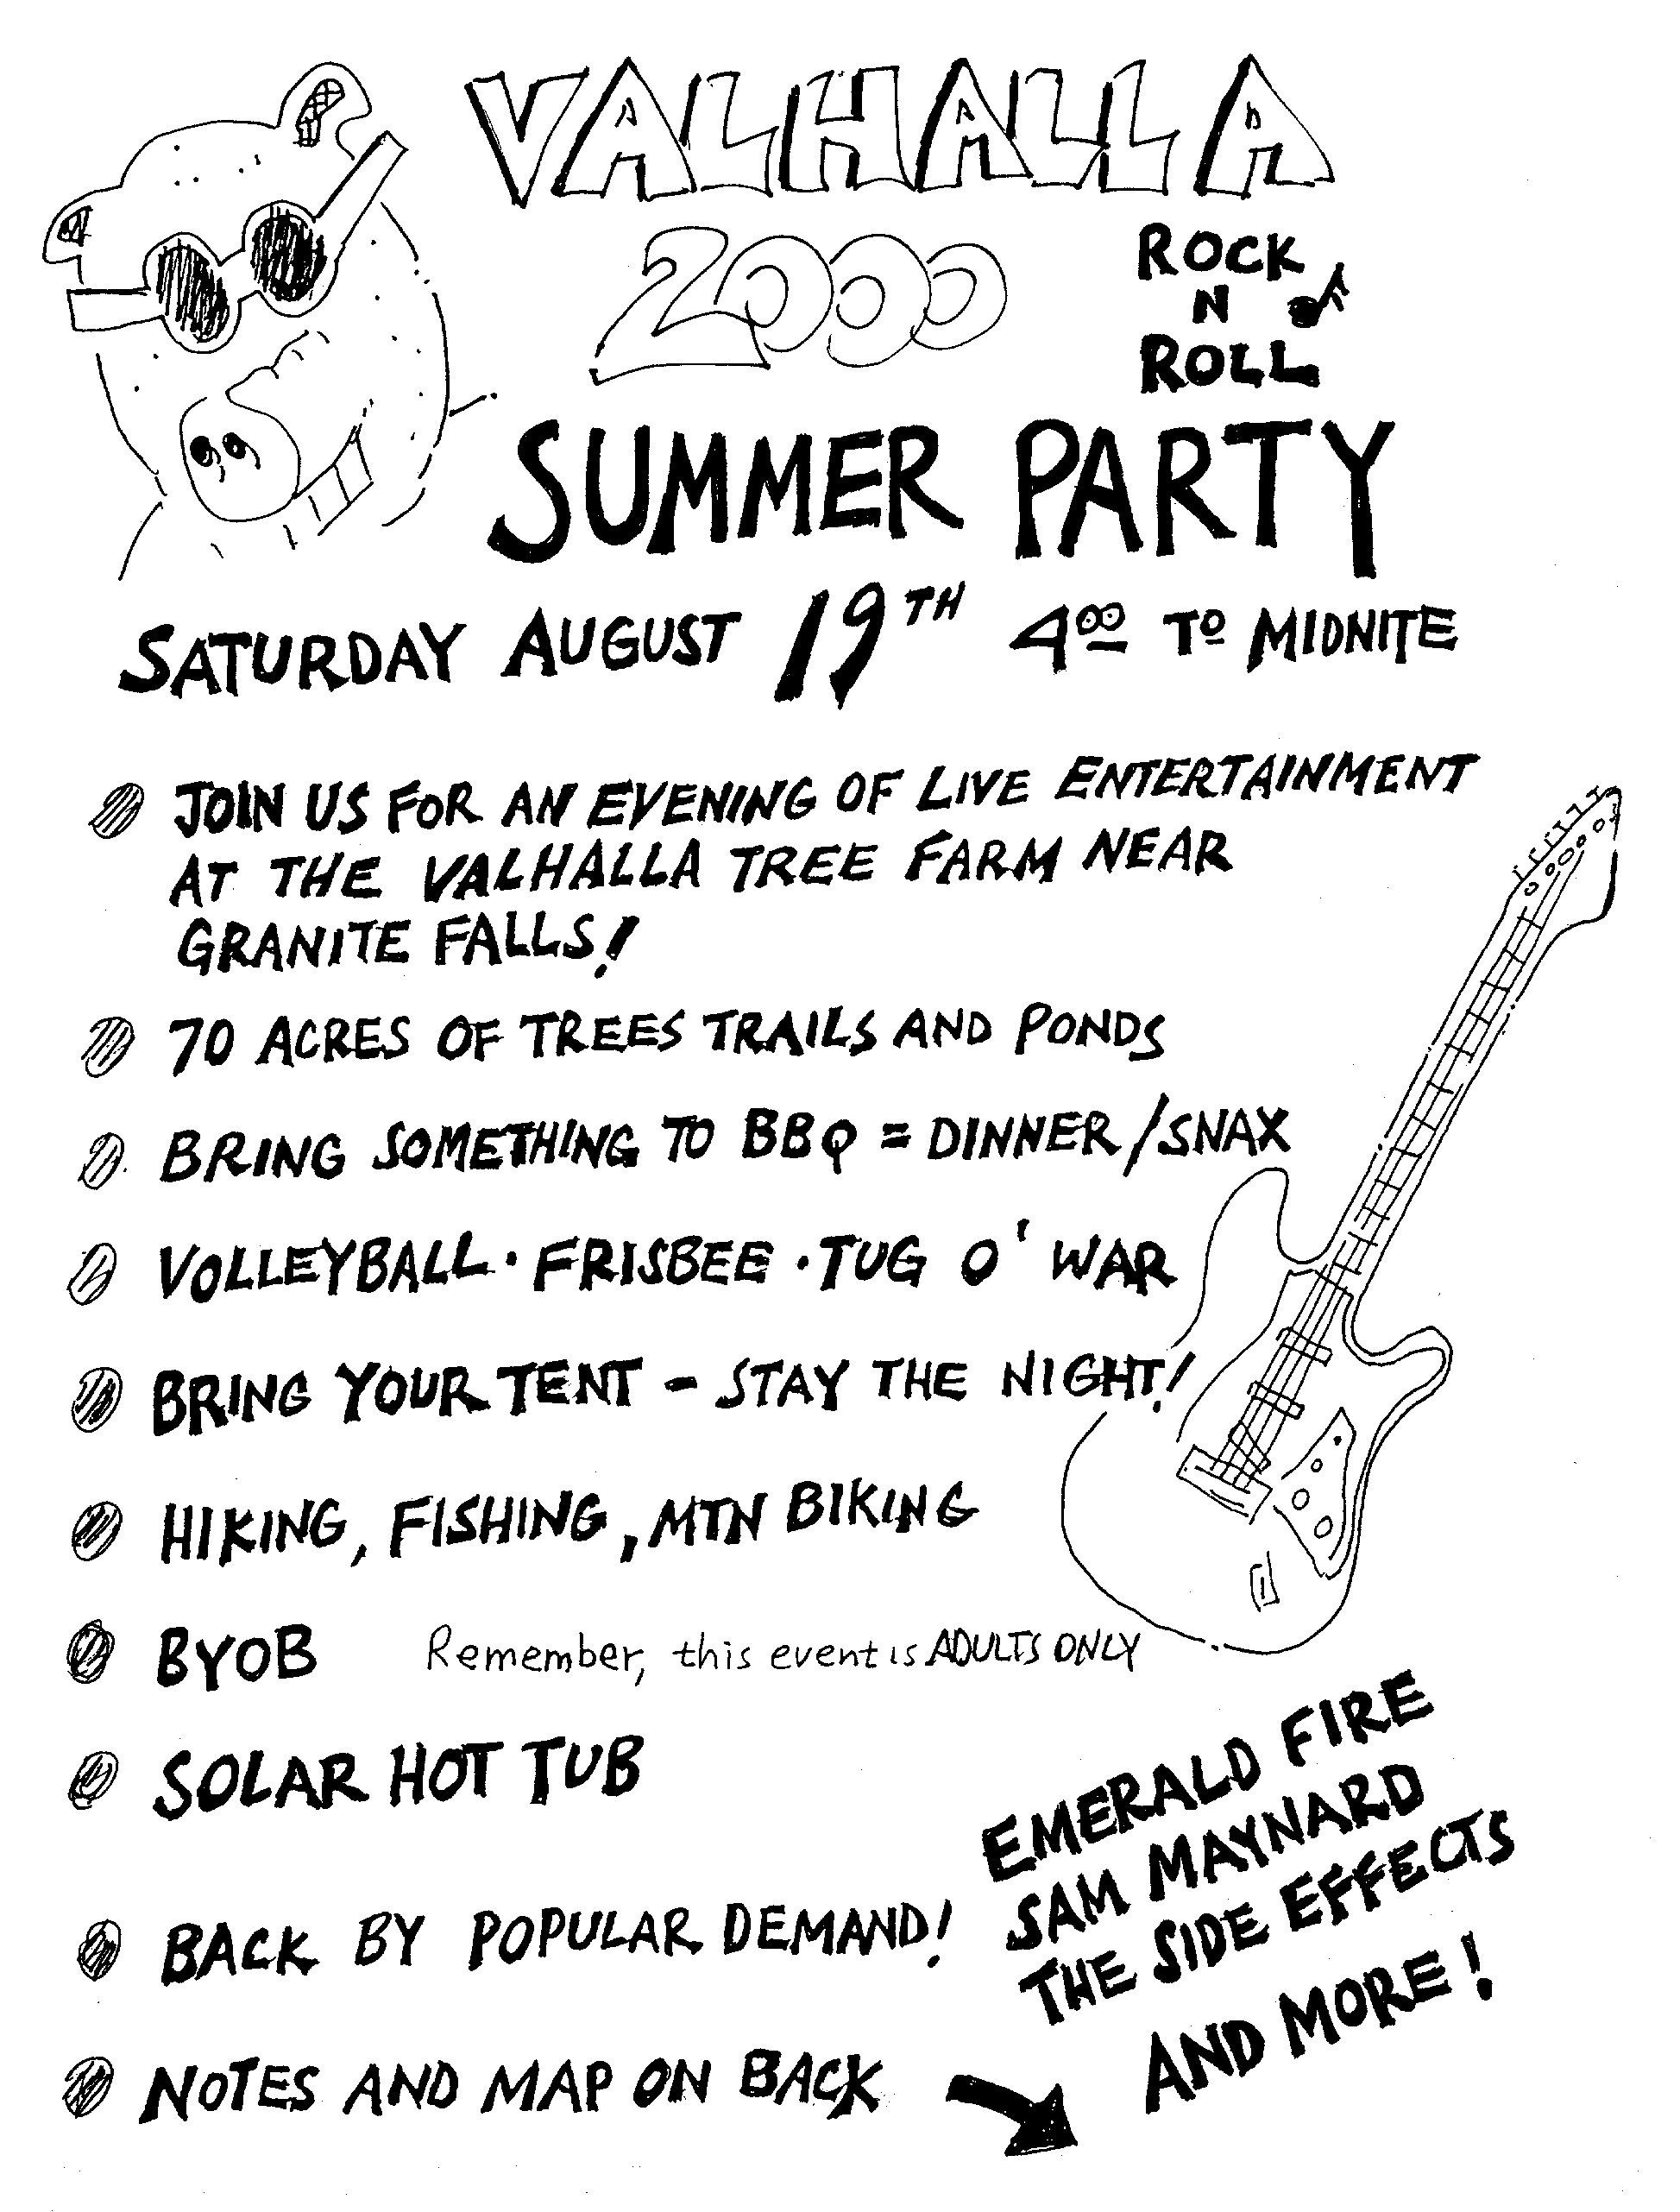 VALHALLA
2000
ROCK
N
ROLL
SUMMER PARTY
SATURDAY AUGUST 19TH 400 TO MIDNITE
JOIN US FOR AN EVENING OF LIVE ENTERTAINMENT
AT THE VALHALLA TREE FARM NEAR
GRANITE FALLS!
70 ACRES OF TREES TRAILS AND PONDS
BRING SOMETHING TO BBQ = DINNER/SNAX
VOLLEYBALL · FRISBEE · TUG O' WAR
BRING YOUR TENT - STAY THE NIGHT!
HIKING, FISHING, MTN BIKING
BYOB Remember, this event is ADULTS ONLY
SOLAR HOT TUB
BACK BY POPULAR DEMAND!
EMERALD FIRE
SAM MAYNARD
THE SIDE EFFECTS
AND MORE!
NOTES AND MAP ON BACK